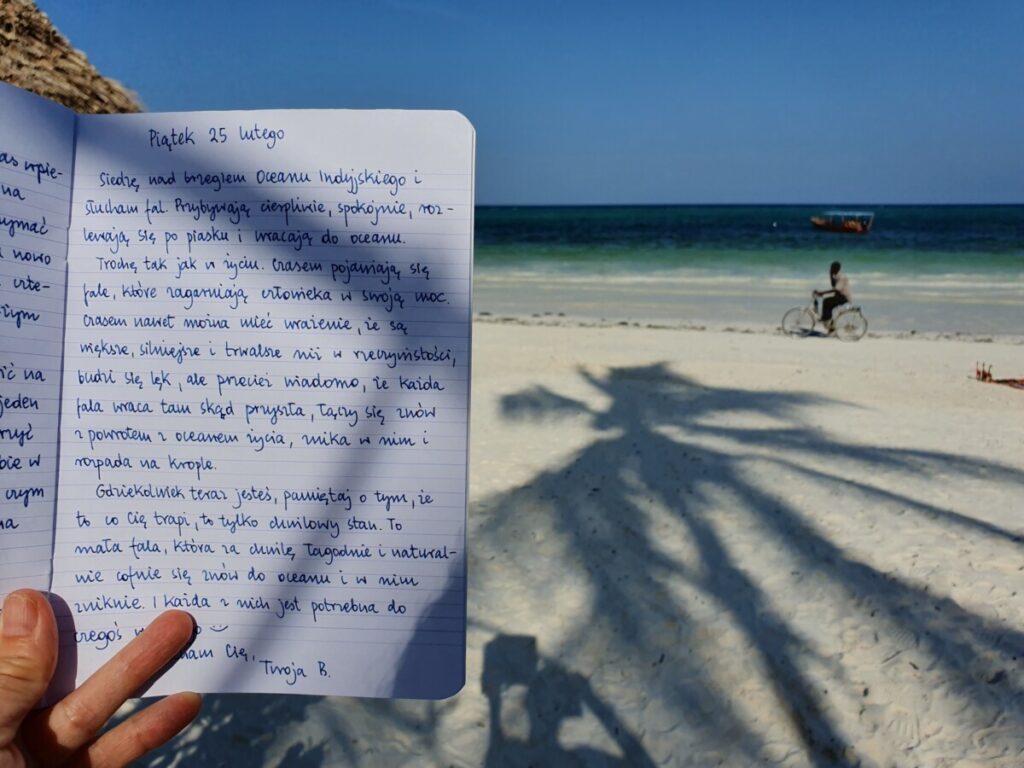 as wpie-
na
zymać
nowo
wte-
łym
ić na
jeden
rzyć
bie w
czym
na
Piątek 25 lutego
Siedzę nad brzegiem Oceanu Indyjskiego i
słucham fal. Przybywają cierpliwie, spokojnie, roz-
lewają się po piasku i wracają do oceanu.
Trochę tak jak w życiu. Czasem pojawiają się
fale, które zagarniają człowieka w swoją moc.
Czasem nawet można mieć wrażenie, że są
większe, silniejsze i trwalsze niż w rzeczywistości,
budzi się lęk, ale przecież wiadomo, że każda
fala wraca tam skąd przyszła, łączy się znów
z powrotem z oceanem życia, znika w nim i
rozpada na krople.
Gdziekolwiek teraz jesteś, pamiętaj o tym, że
to co Cię trapi, to tylko chwilowy stan. To
mała fala, która za chwilę łagodnie i natural-
nie cofnie się znów do oceanu i w nim
zniknie. I każda z nich jest potrzebna do
czegoś
Cię,
Twoja B.